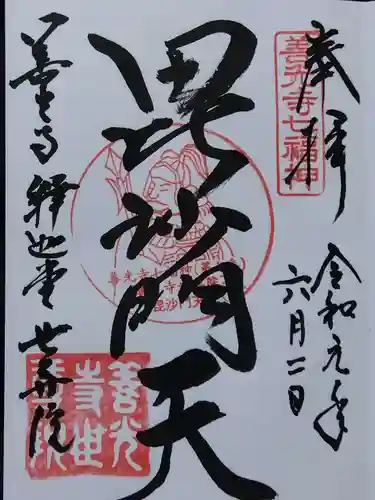 奉拝
善光寺七福神
令和元年
六月二日
毘沙門天
毘沙門天
善光寺釈迦堂世尊院
善光
寺世
尊院